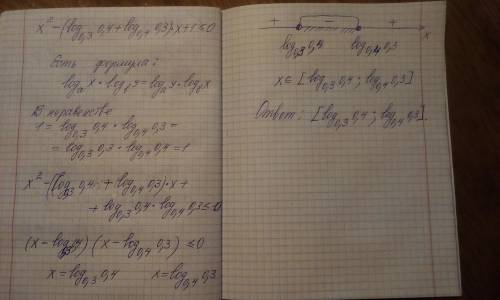 x² - (log₀,₃ 0,4 + log₀,₄ 0,3)·x + 1 ≤ 0
Есть формула:
logₐ x · log_b y = logₐ y · log_b x
В неравенстве
1 = log₀,₃ 0,4 · log₀,₄ 0,3 =
= log₀,₃ 0,3 · log₀,₄ 0,4 = 1
x² - (log₀,₃ 0,4 + log₀,₄ 0,3)·x +
+ log₀,₃ 0,4 · log₀,₄ 0,3 ≤ 0
(x - log₀,₃ 0,4)(x - log₀,₄ 0,3) ≤ 0
x = log₀,₃ 0,4 x = log₀,₄ 0,3
+ - +
log₀,₃ 0,4 log₀,₄ 0,3 x
x ∈ [log₀,₃ 0,4 ; log₀,₄ 0,3]
Ответ: [log₀,₃ 0,4 ; log₀,₄ 0,3].